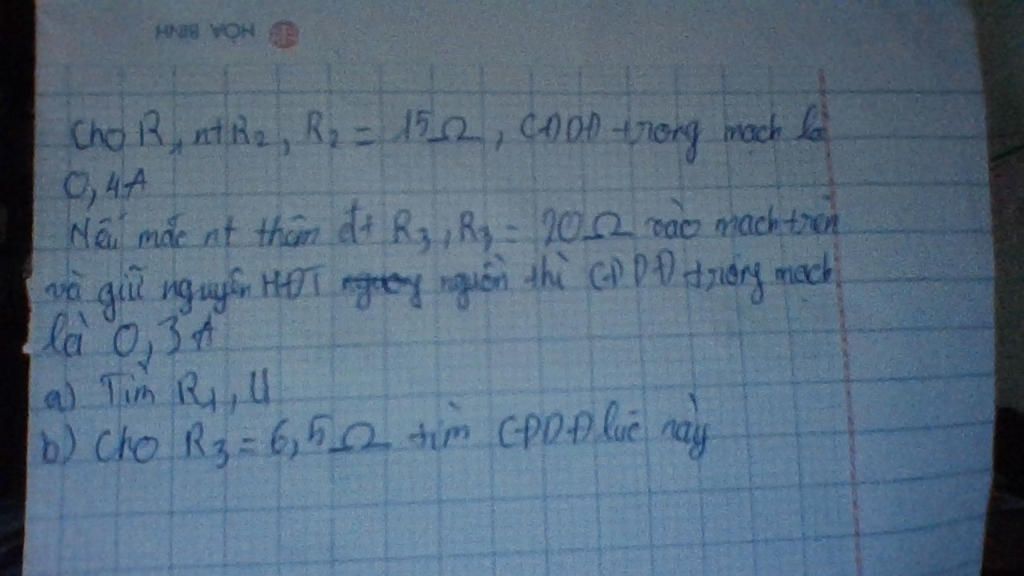 HÒA BÌNH
Cho R1 nt R2, R2 = 15Ω, CĐDĐ trong mạch là
0,4A
Nếu mắc nt thêm đt R3, R3 = 20Ω vào mạch trên
và giữ nguyên HĐT nguồn thì CĐDĐ trong mạch
là 0,3A
a) Tìm R1, U
b) Cho R3 = 6,5Ω tìm CĐDĐ lúc này